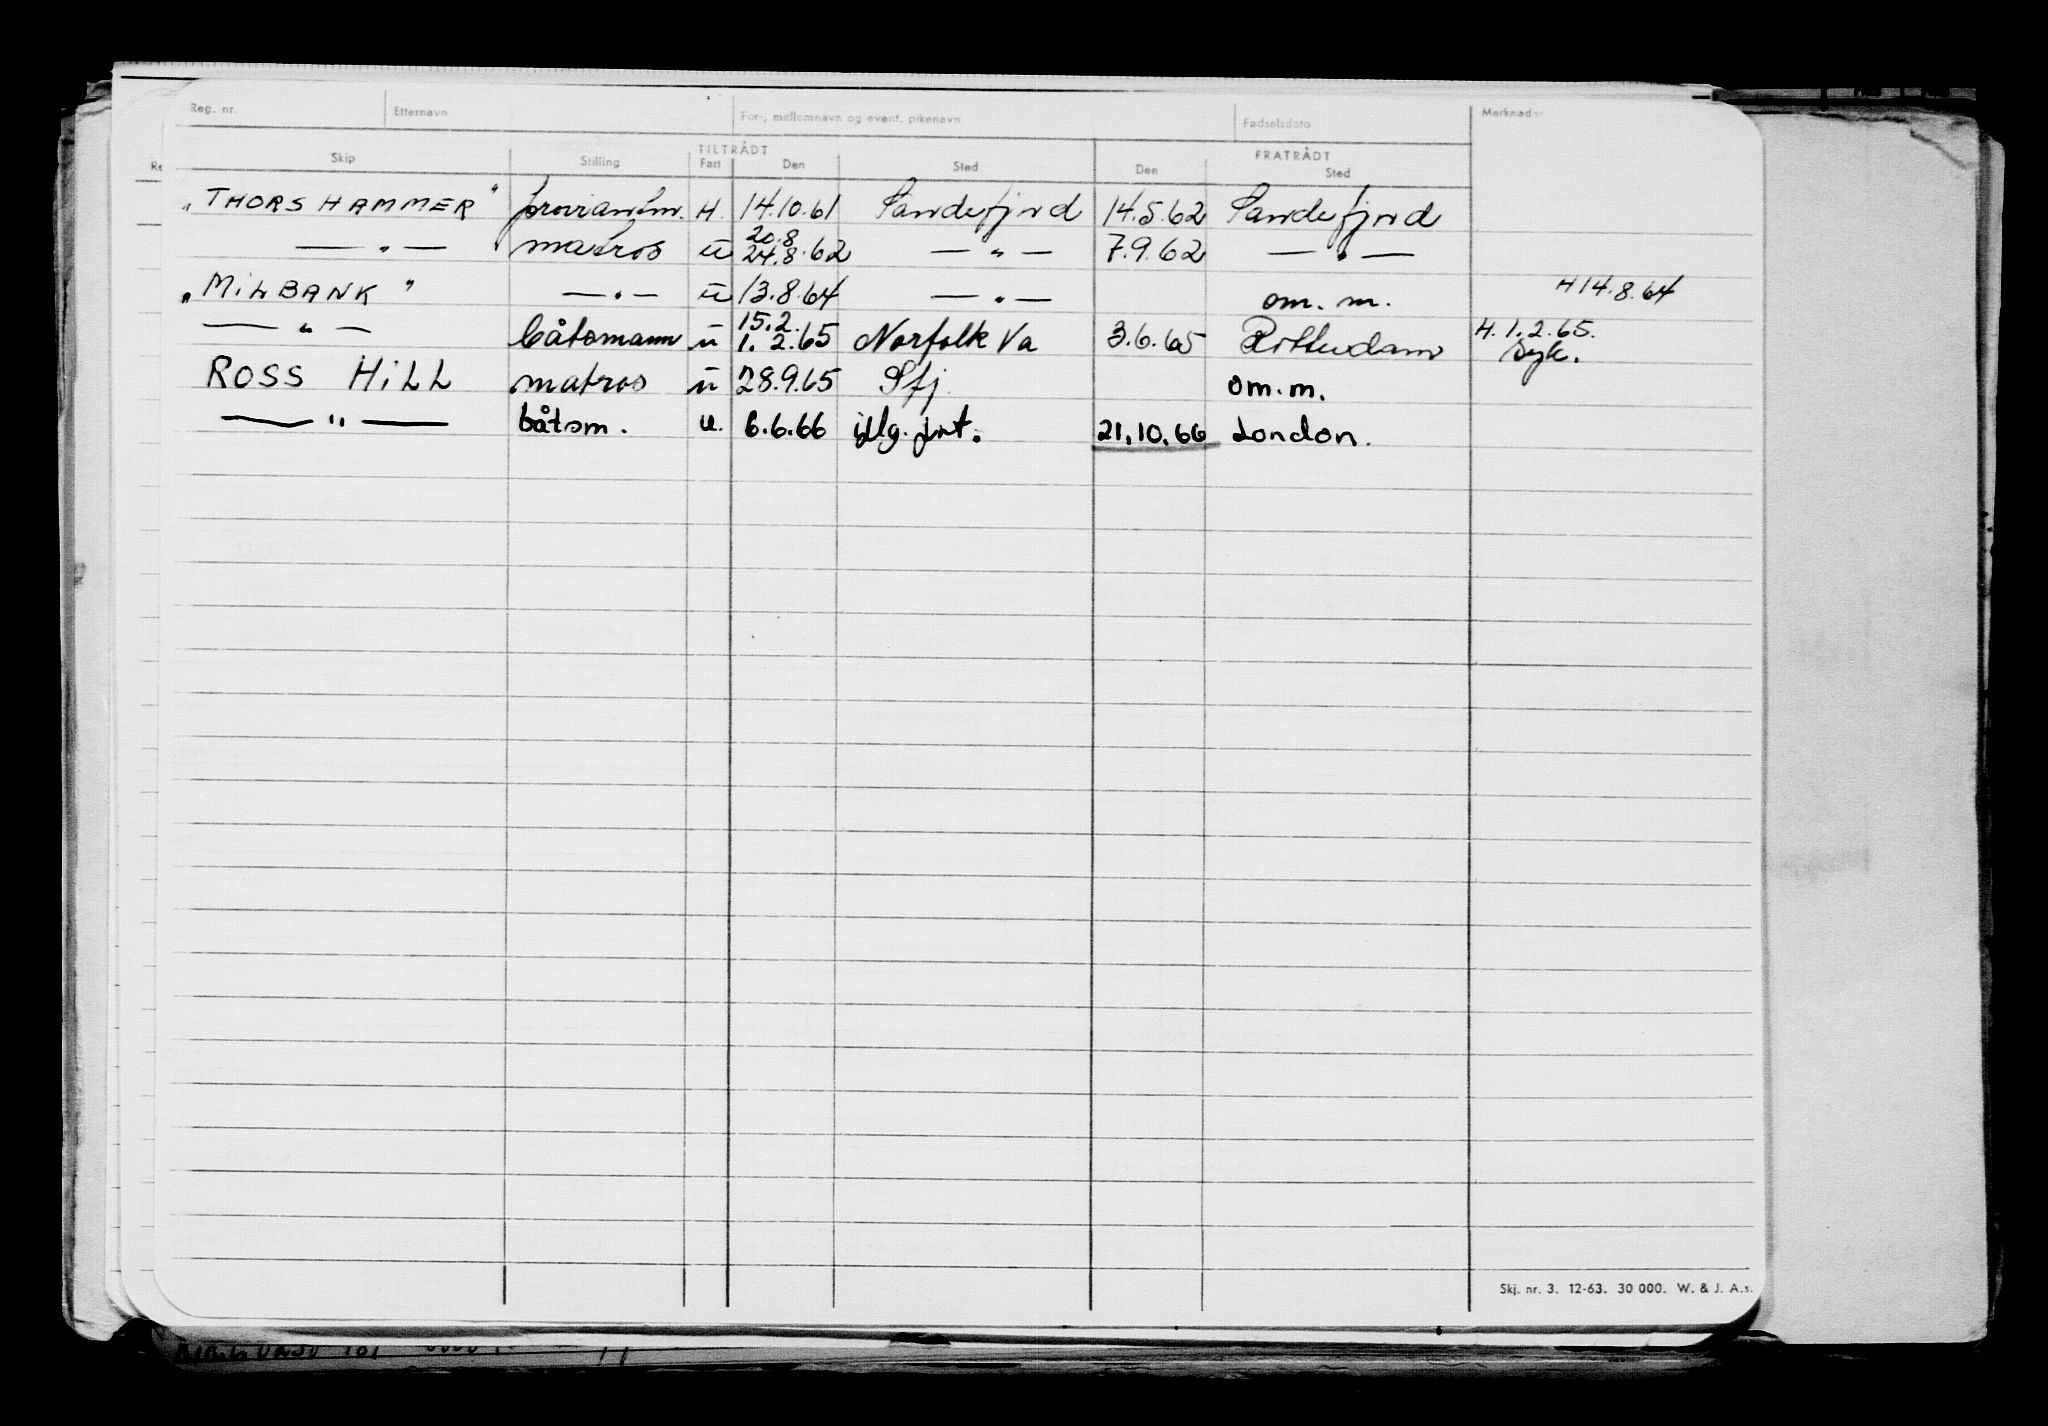 Reg. nr. Etternavn For-, mellomnavn og event. pikenavn Fødselsdato Merknader
TILTRÅDT FRATRÅDT
Skip Stilling Fart Den Sted Den Sted
"THORSHAMMER" proviantm. H. 14.10.61 Sandefjord 14.5.62 Sandefjord
— " — matros u 20.8 24.8.62 — " — 7.9.62 — " —
"MILBANK" — " — u 13.8.64 — " — om. m. H 14.8.64
— " — båtsmann u 15.2. 1.2.65 Norfolk Va 3.6.65 Rotterdam H. 1.2.65. syk.
ROSS HILL matros u 28.9.65 Sfj. om. m.
— " — båtsm. u. 6.6.66 21.10.66 London.
Skj. nr. 3. 12-63. 30 000. W. & J. A.s.